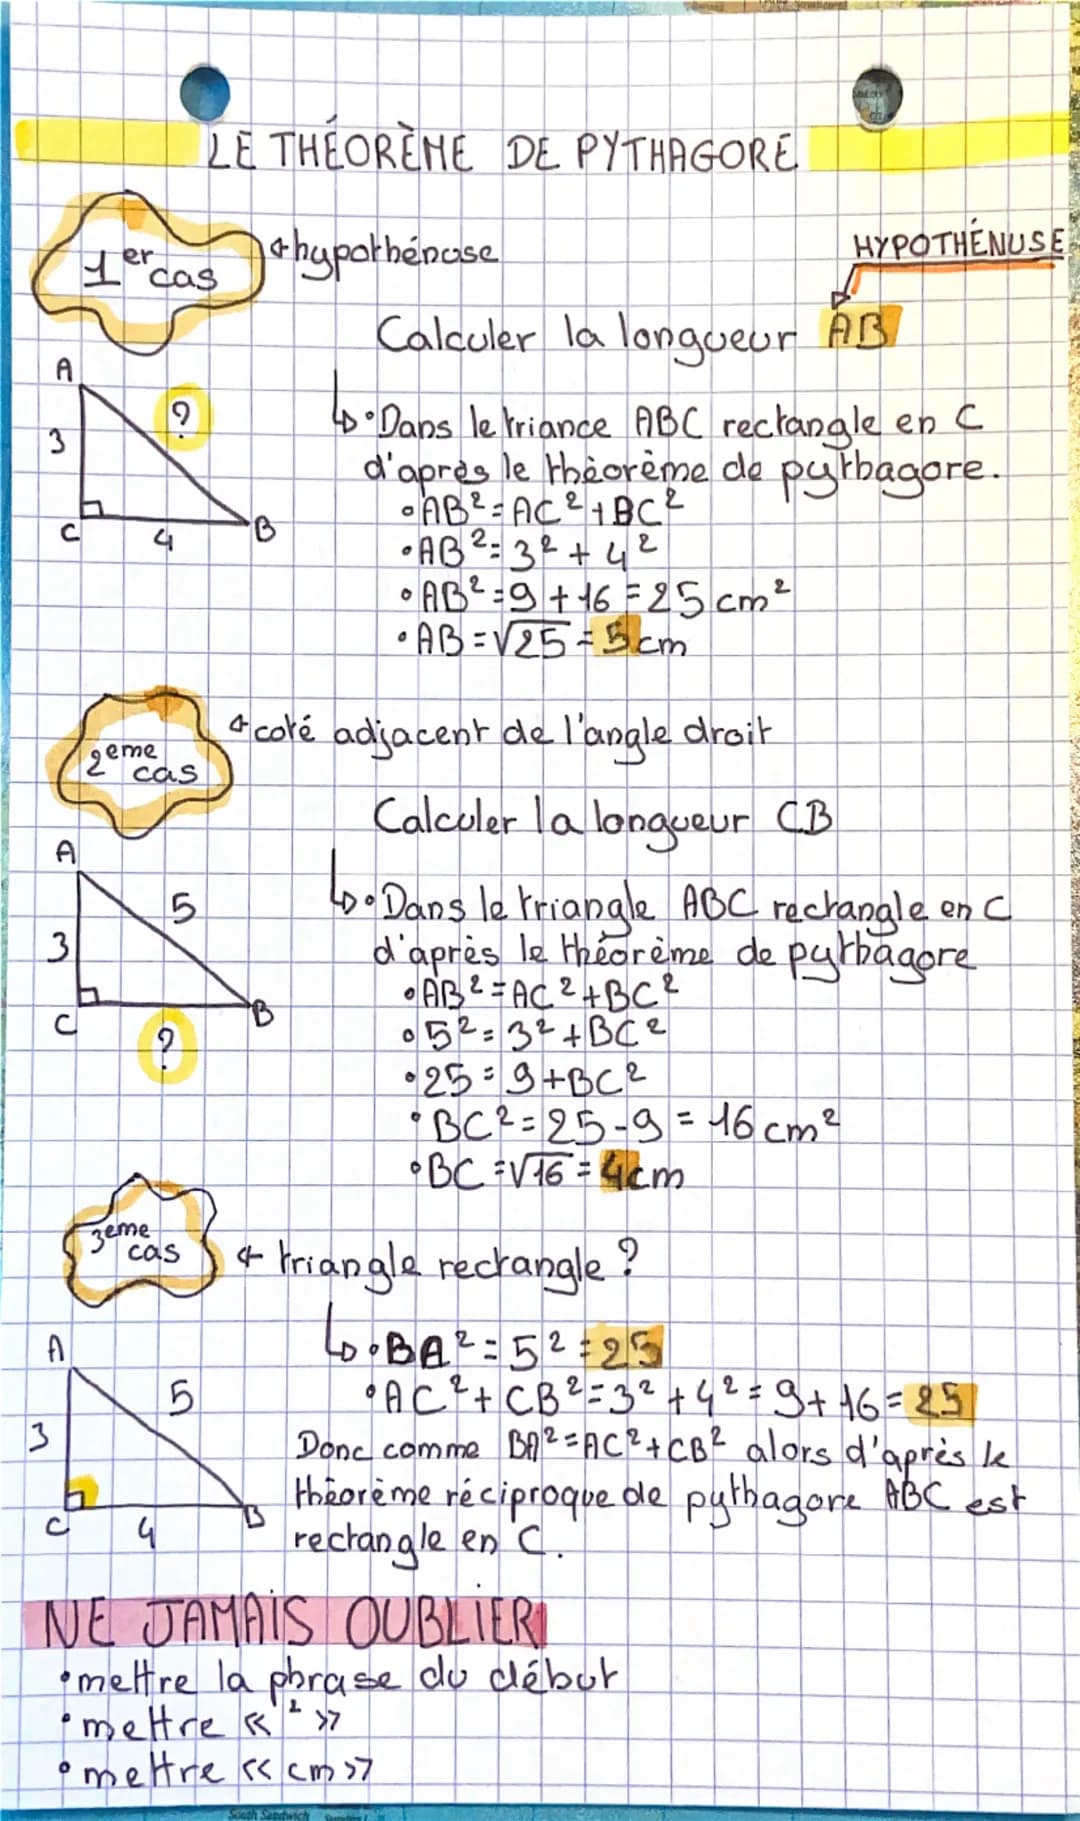 LE THÉORÈME DE PYTHAGORE
1er cas
hypothénuse
HYPOTHÉNUSE
Calculer la longueur AB
A
?
3
C
4
B
•Dans le triance ABC rectangle en C
d'après le théorème de pythagore.
•AB²=AC²+BC²
•AB²=3²+4²
•AB²=9+16=25cm²
•AB=√25=5cm
2eme cas
coté adjacent de l'angle droit
Calculer la longueur CB
A
5
3
C
B
?
•Dans le triangle ABC rectangle en C
d'après le théorème de pythagore
•AB²=AC²+BC²
•5²=3²+BC²
•25=9+BC²
•BC²=25-9=16cm²
•BC=√16=4cm
3eme cas
triangle rectangle ?
A
5
3
C
4
B
•BA²=5²=25
•AC²+CB²=3²+4²=9+16=25
Donc comme BA²=AC²+CB² alors d'après le
théorème réciproque de pythagore ABC est
rectangle en C.
NE JAMAIS OUBLIER
•mettre la phrase du début
•mettre «²»
•mettre «cm»
South Sandwich